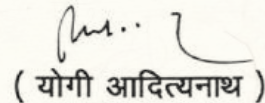 ( योगी आदित्यनाथ )